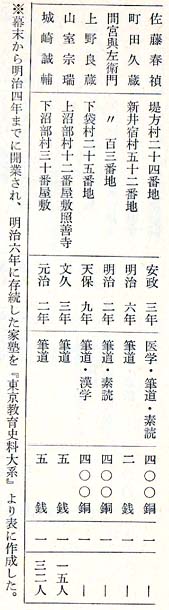 佐藤春禎 堤方村二十四番地 安政三年 医学・筆道・素読 四〇〇銅 一 ―
町田久蔵 新井宿村五十二番地 明治六年 筆道 二銭 一 ―
間宮與左衛門 〃 百三番地 明治二年 筆道・素読 四〇〇銅 一 ―
上野良蔵 下袋村二十五番地 天保九年 筆道・漢学 四〇〇銅 一 ―
山室宗瑞 上沼部村十二番屋敷照善寺 文久三年 筆道 五銭 一 一五人
城崎誠輔 下沼部村三十番屋敷 元治二年 筆道 五銭 一 三二人
※幕末から明治四年までに開業され、明治六年に存続した家塾を『東京教育史料大系』より表に作成した。